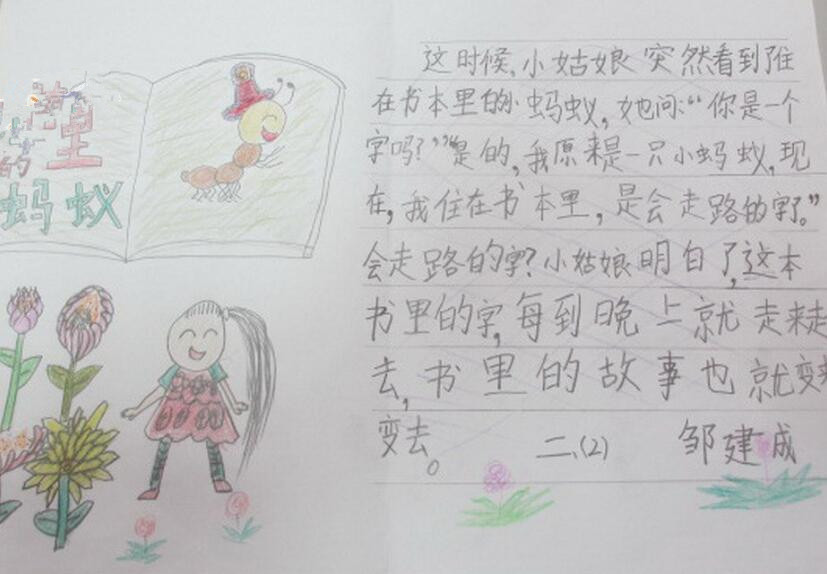 里
的
蚂蚁
这时候,小姑娘突然看到了住
在书本里的小蚂蚁,她问:“你是一个
字吗?”“是的,我原来是一只小蚂蚁,现
在,我住在书本里,是会走路的字了。”
会走路的字?小姑娘明白了,这本
书里的字,每到晚上就走来走
去,书里的故事也就变来
变去。 二、(2) 邹建成